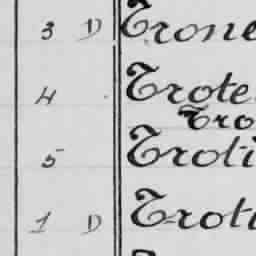 3 D Trone
4 Trote
Tro
5 Troti
1 D Trot